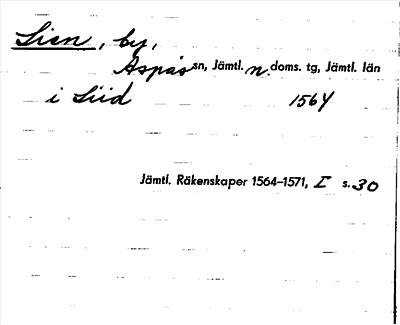 Lien, by,
Aspås sn, Jämtl. n. doms. tg, Jämtl. län
i Liid 1564
Jämtl. Räkenskaper 1564–1571, I s. 30